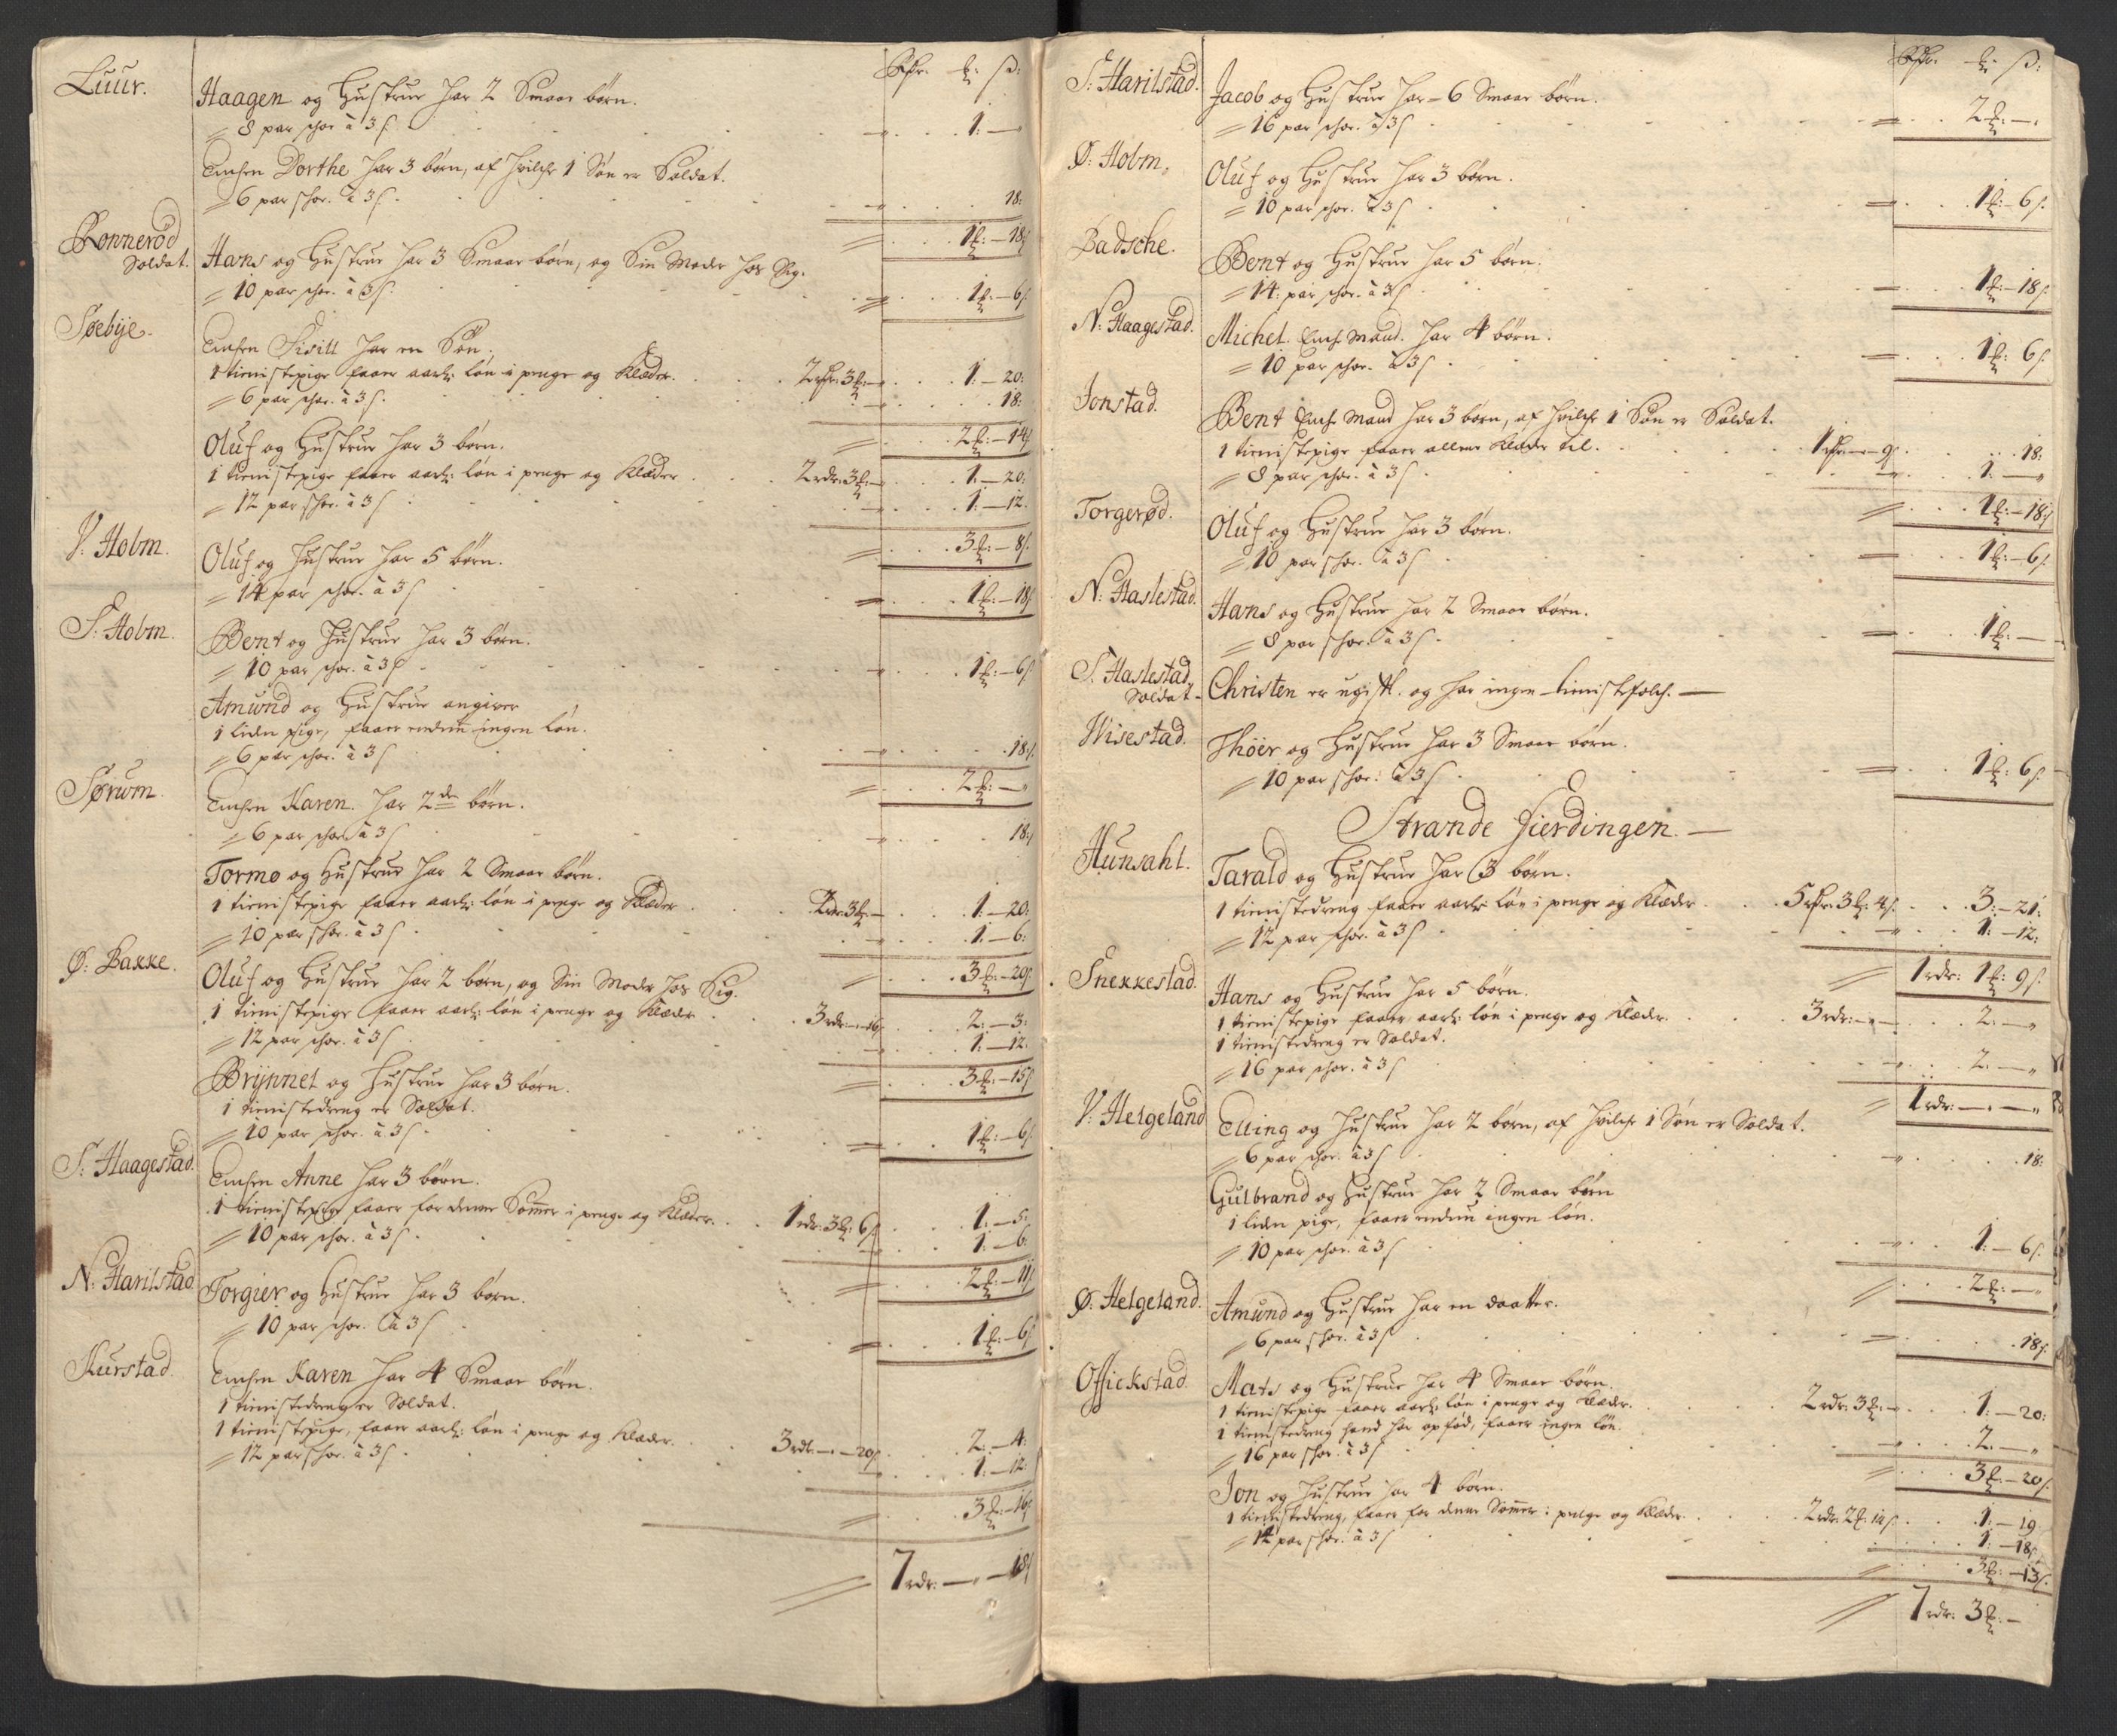 Rdr. ℔: ß:
Luur. Haagen og Hustrue har 2 Smaae börn.
8 par schoe à 3 ß. 1: —
Enchen Dorthe har 3 börn, af hvilche 1 Sön er Soldat.
6 par schoe. à 3 ß. 18:
1℔: — 18ß
Ronnerød
Soldat. Hans og Hustrue har 3 Smaae börn, og Sin Moder hos Sig.
10 par schoe. à 3 ß. 1℔: — 6ß
Søebÿe. Enchen Sisill har en Sön.
1 tienistepige faaer aarl: lön i penge og Klæder. 2 rdr: 3℔: — 1: — 20:
6 par schoe. à 3 ß. 18:
2℔: — 14ß
Oluf og Hustrue har 3 börn.
1 tienistepige faaer aarl: lön i penge og Klæder 2 rdr: 3℔: — 1: — 20:
12 par schoe. à 3 ß 1: — 12.
3℔: — 8ß.
V: Holm. Oluf og Hustrue har 5 börn.
14 par schoe. à 3 ß 1℔: — 18ß
S: Holm. Bent og Hustrue har 3 börn.
10 par schoe. à 3 ß 1℔: — 6ß
Amund og Hustrue angiver
1 liden pige, faaer endnu ingen lön.
6 par schoe. à 3 ß 18ß.
2℔: —
Sørum. Enchen Karen. har 2de börn.
6 par schoe à 3 ß 18ß
Tormo og Hustrue har 2 Smaae börn.
1 tienistepige faaer aarl: lön i penge og Klæder 2 rdr: 3℔: — 1: — 20:
10 par schoe. à 3 ß 1: — 6:
3℔: — 20ß
Ø: Bakke. Oluf og Hustrue har 2 börn, og Sin Moder hos Sig.
1 tienistepige faaer aarl: lön i penge og Klæder 3 rdr: — 16 2: — 3:
12 par schoe. à 3 ß 1: — 12.
3℔: — 15ß
Brÿnnel og Hustrue har 3 börn.
1 tienistedreng er Soldat.
10 par schoe. à 3 ß. 1℔: — 6ß
S: Haagestad. Enchen Anne har 3 börn.
1 tienistepige faaer for denne Sommer i penge og Klæder. 1 rdr: 3℔: 6ß 1: — 5:
10 par schoe. à 3 ß. 1: — 6:
2℔: — 11ß
N: Harilstad Torgier og Hustrue har 3 börn.
10 par schoe. à 3 ß 1℔: — 6ß
Kurstad. Enchen Karen har 4 Smaae börn.
1 tienistedreng er Soldat.
1 tienistepige, faaer aarl: lön i penge og Klæder. 3 rdr: — 20ß 2: — 4:
12 par schoe. à 3 ß. 1: — 12:
3℔: — 16ß
7 rdr: — 18ß
Rdr. ℔: ß:
S: Harilstad. Jacob og Hustrue har 6 Smaae börn.
16 par schoe. à 3 ß 2℔: —
Ø: Holm. Oluf og Hustrue har 3 börn.
10 par schoe. à 3 ß 1℔: — 6ß.
Badsche. Bent og Hustrue har 5 börn.
14: par schoe. à 3 ß 1℔: — 18ß.
N: Haagestad. Michel. Enche Mand. har 4 börn.
10 par schoe. à 3 ß 1℔: 6ß
Jonstad. Bent Enche Mand har 3 börn, af hvilche 1 Sön er Soldat.
1 tienistepige faaer allene Klæder til. 1 rdr: — 9ß 18:
8 par schoe. à 3 ß 1: —
1℔: — 18ß
Torgerød. Oluf og Hustrue har 3 börn.
10 par schoe. à 3 ß 1℔: — 6ß.
N: Haslestad. Hans og Hustrue har 2 Smaae börn.
8 par schoe. à 3 ß. 1℔: —
S. Haslestad.
Soldat Christen er ugift. og har ingen tienistefolch. —
Wisestad. Thöer og Hustrue har 3 Smaae börn.
10 par schoe: à 3 ß 1℔: 6ß
Strande Fierdingen. —
Hunsahl. Tarald og Hustrue har 3 börn.
1 tienistedreng faaer aarl: lön i penge og Klæder 5 rdr: 3℔: 4ß. 3: — 21:
12 par schoe. à 3 ß 1: — 12:
1 rdr: 1℔: 9ß.
Snekkestad. Hans og Hustrue har 5 börn.
1 tienistepige faaer aarl: lön i penge og Klæder. 3 rdr: — 2: —
1 tienistedreng er Soldat.
16 par schoe. à 3 ß 2. —
1 rdr: — —
V: Helgeland Elling og Hustrue har 2 börn, af hvilche 1 Sön er Soldat.
6 par schoe. à 3 ß 18:
Gulbrand og Hustrue har 2 Smaae börn
1 liden pige, faaer endnu ingen lön.
10 par schoe. à 3 ß 1: — 6ß.
2℔: —
Ø: Helgeland. Amund og Hustrue har en daatter.
6 par schoe. à 3 ß 18ß.
Offickstad. Mats og Hustrue har 4 Smaae börn.
1 tienistepige faaer aarl: lön i penge og Klæder. 2 rdr: 3℔: — 1: — 20:
1 tienistedreng hand har opfød, faaer ingen lön.
16 par schoe. à 3 ß 2. —
3℔: — 20ß.
Jon og Hustrue har 4 börn.
1 tienistedreng, faaer for denne Sommer i penge og Klæder 2 rdr: 2℔: 12ß. 1: — 19
14 par schoe. à 3 ß 1: — 18ß.
3℔: — 13ß.
7 rdr: 3℔: —